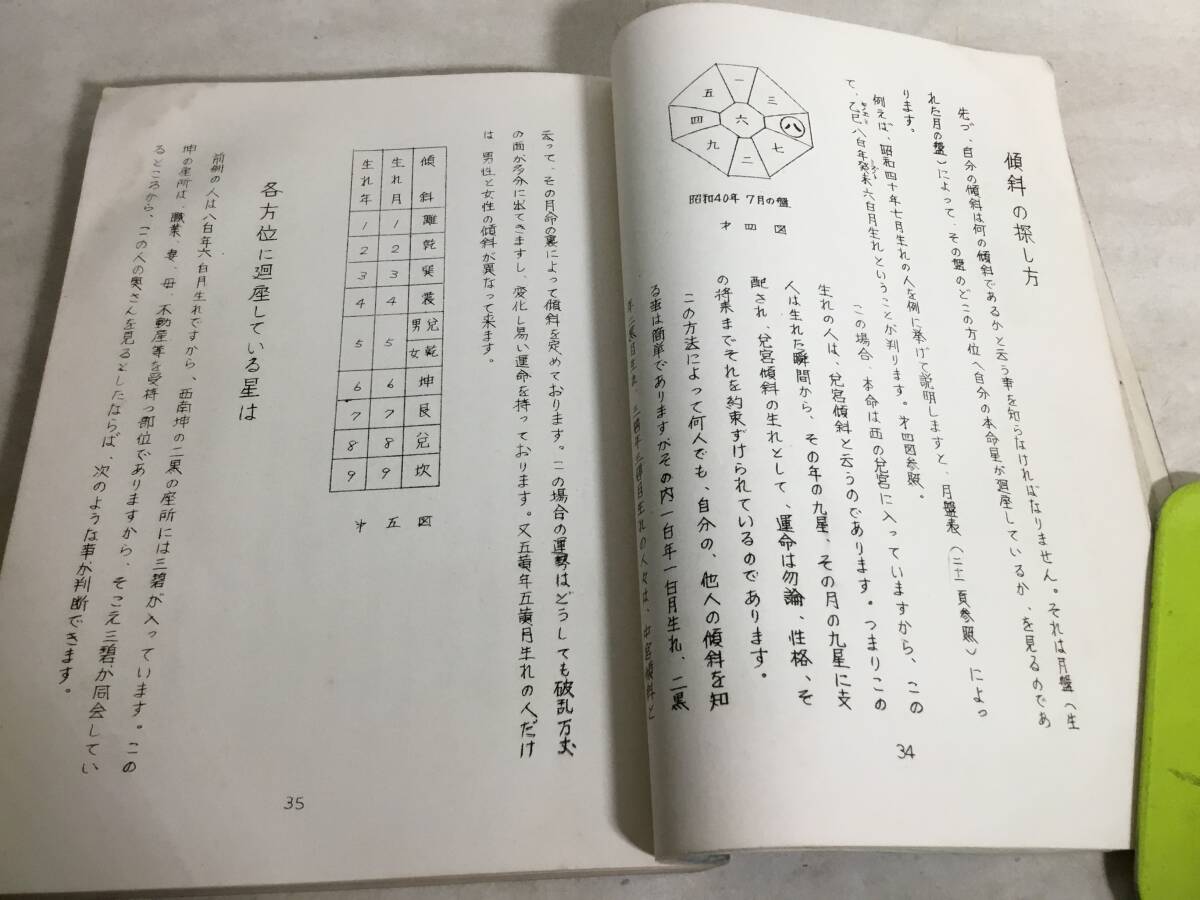 傾斜の探し方
先づ、自分の傾斜は何の傾斜であるかと云う事を知らなければなりません。それは月盤(生
れた月の盤)によって、その盤のどこの方位へ自分の本命星が廻座しているか、を見るのであ
ります。
例えば、昭和四十年七月生れの人を例に挙げて説明しますと、月盤表(二十一頁参照)によっ
て、乙巳八白年癸未六白月生れということが判ります。才四図参照。
この場合、本命は西の兌宮に入っていますから、この
生れの人は、兌宮傾斜と云うのであります。つまりこの
人は生れた瞬間から、その年の九星、その月の九星に支
配され、兌宮傾斜の生れとして、運命は勿論、性格、そ
の将来までそれを約束ずけられているのであります。
この方法によって何人でも、自分の、他人の傾斜を知
る事は簡単でありますがその内一白年一白月生れ、二黒
年二黒月生れ、三碧年三碧月生れの人々は、中宮傾斜と
一
三
八
七
二
九
四
五
六
昭和40年 7月の盤
才四図
34
云って、その月命の裏によって傾斜を定めております。この場合の運勢はどうしても破乱万丈
の面が多分に出てきますし、変化し易い運命を持っております。又五黄年五黄月生れの人だけ
は男性と女性の傾斜が異なって来ます。
傾斜 離 乾 巽 震 男兌 女乾 坤 艮 兌 坎
生れ月 1 2 3 4 5 6 7 8 9
生れ年 1 2 3 4 5 6 7 8 9
才五図
各方位に廻座している星は
前例の人は八白年六白月生れですから、西南坤の二黒の座所には三碧が入っています。この
坤の座所は、職業、妻、母、不動産等を受持つ部位でありますから、そこえ三碧が同会してい
るところから、この人の奥さんを見るとしたならば、次のような事が判断できます。
35